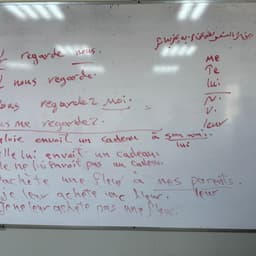 regarde nous.
nous regarde.
regardez moi.
me regardez.
me
Te
lui
N.
V.
leur
envoit un cadeau à son ami.
lui
elle lui envoit un cadeau.
ne lui envoit pas un cadeau.
achète une fleur à mes parents.
leur
Je leur achète une fleur.
Je ne leur achète pas une fleur.